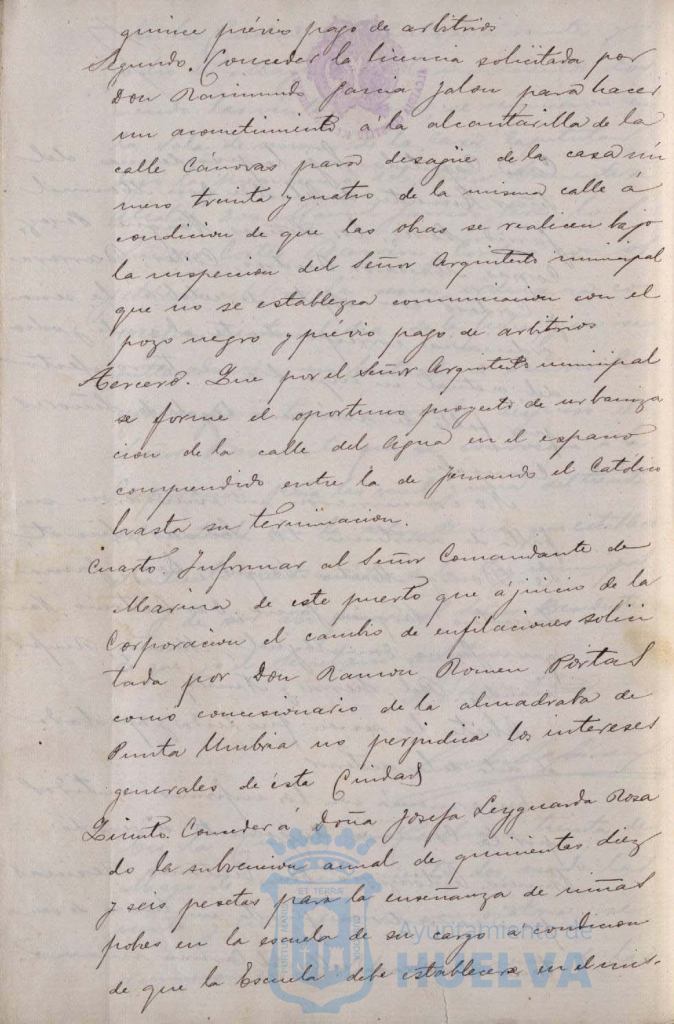 quince prévio pago de arbitrios
Segundo. Conceder la licencia solicitada por
Don Raimundo Garcia Jalon para hacer
un acometimiento á la alcantarilla de la
calle Cánovas para desagüe de la casa nú
mero treinta y cuatro de la misma calle á
condicion de que las obras se realicen bajo
la inspeccion del Señor Arquitecto municipal
que no se establezca comunicacion con el
pozo negro y prévio pago de arbitrios
Tercero. Que por el Señor Arquitecto municipal
se forme el oportuno proyecto de urbaniza
cion de la calle del Agua en el espacio
comprendido entre la de Fernando el Católico
hasta su terminacion.
Cuarto. Informar al Señor Comandante de
Marina de este puerto que á juicio de la
Corporacion el cambio de enfilaciones solici
tada por Don Ramon Romeu Portas
como concesionario de la almadraba de
Punta Umbria no perjudica los intereses
generales de ésta Ciudad
Quinto. Conceder á Doña Josefa Leyguarda Rosa
do la subvencion anual de quinientas diez
y seis pesetas para la enseñanza de niñas
pobres en la escuela de su cargo á condicion
de que la Escuela debe establecerse en el mis-
Ayuntamiento de
HUELVA